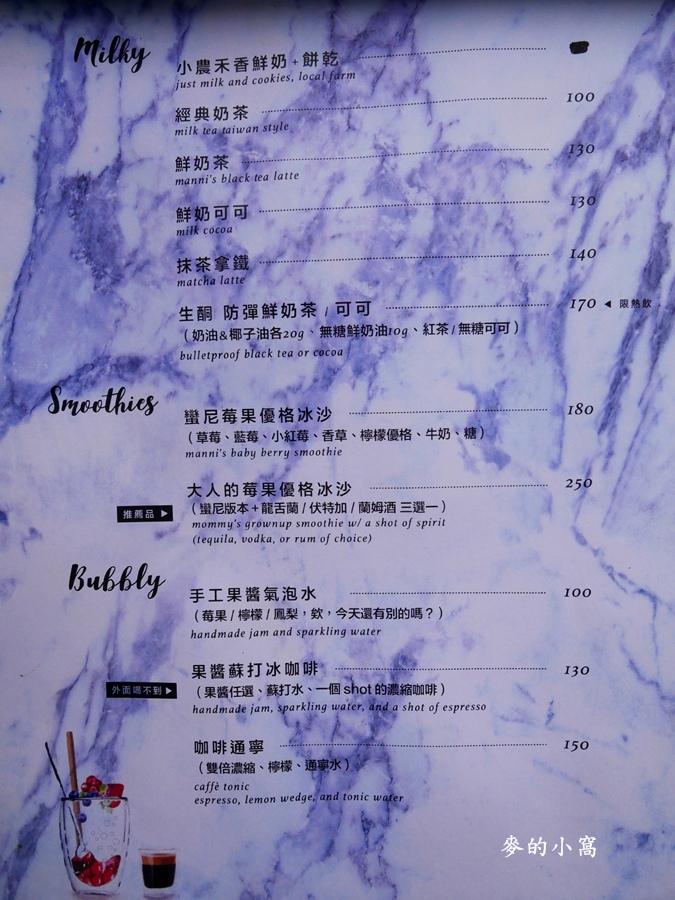 Milky
小農禾香鮮奶+餅乾
just milk and cookies, local farm
經典奶茶 100
milk tea taiwan style
鮮奶茶 130
manni's black tea latte
鮮奶可可 130
milk cocoa
抹茶拿鐵 140
matcha latte
生酮 防彈鮮奶茶 / 可可 170 ◀ 限熱飲
（奶油&椰子油各20g、無糖鮮奶油10g、紅茶 / 無糖可可）
bulletproof black tea or cocoa
Smoothies
蠻尼莓果優格冰沙 180
（草莓、藍莓、小紅莓、香草、檸檬優格、牛奶、糖）
manni's baby berry smoothie
大人的莓果優格冰沙 250
推薦品 ▶
（蠻尼版本+龍舌蘭 / 伏特加 / 蘭姆酒 三選一）
mommy's grownup smoothie w/ a shot of spirit
(tequila, vodka, or rum of choice)
Bubbly
手工果醬氣泡水 100
（莓果 / 檸檬 / 鳳梨，欸，今天還有別的嗎？）
handmade jam and sparkling water
果醬蘇打冰咖啡 130
外面喝不到 ▶
（果醬任選、蘇打水、一個 shot 的濃縮咖啡）
handmade jam, sparkling water, and a shot of espresso
咖啡通寧 150
（雙倍濃縮、檸檬、通寧水）
caffè tonic
espresso, lemon wedge, and tonic water
麥的小窩